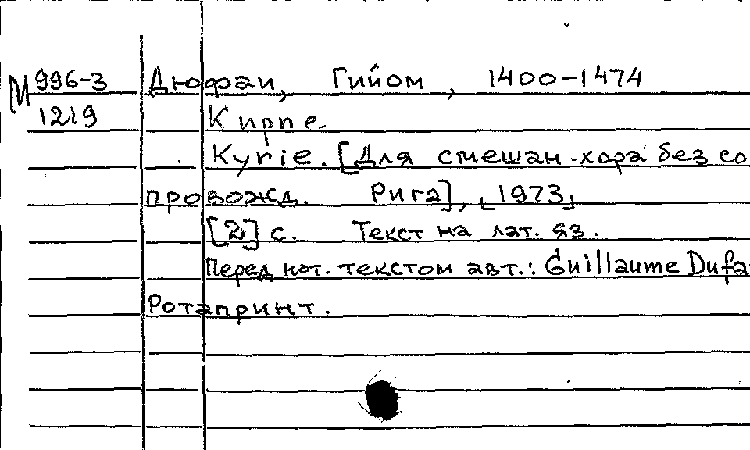 М 996-3 Дюфаи, Гийом, 1400-1474
1219 Кирие.
Kyrie. [Для смешан. хора без со
провожд. Рига], [1973]
[2] с. Текст на лат. яз.
Перед нот. текстом авт.: Guillaume Dufa
Ротапринт.